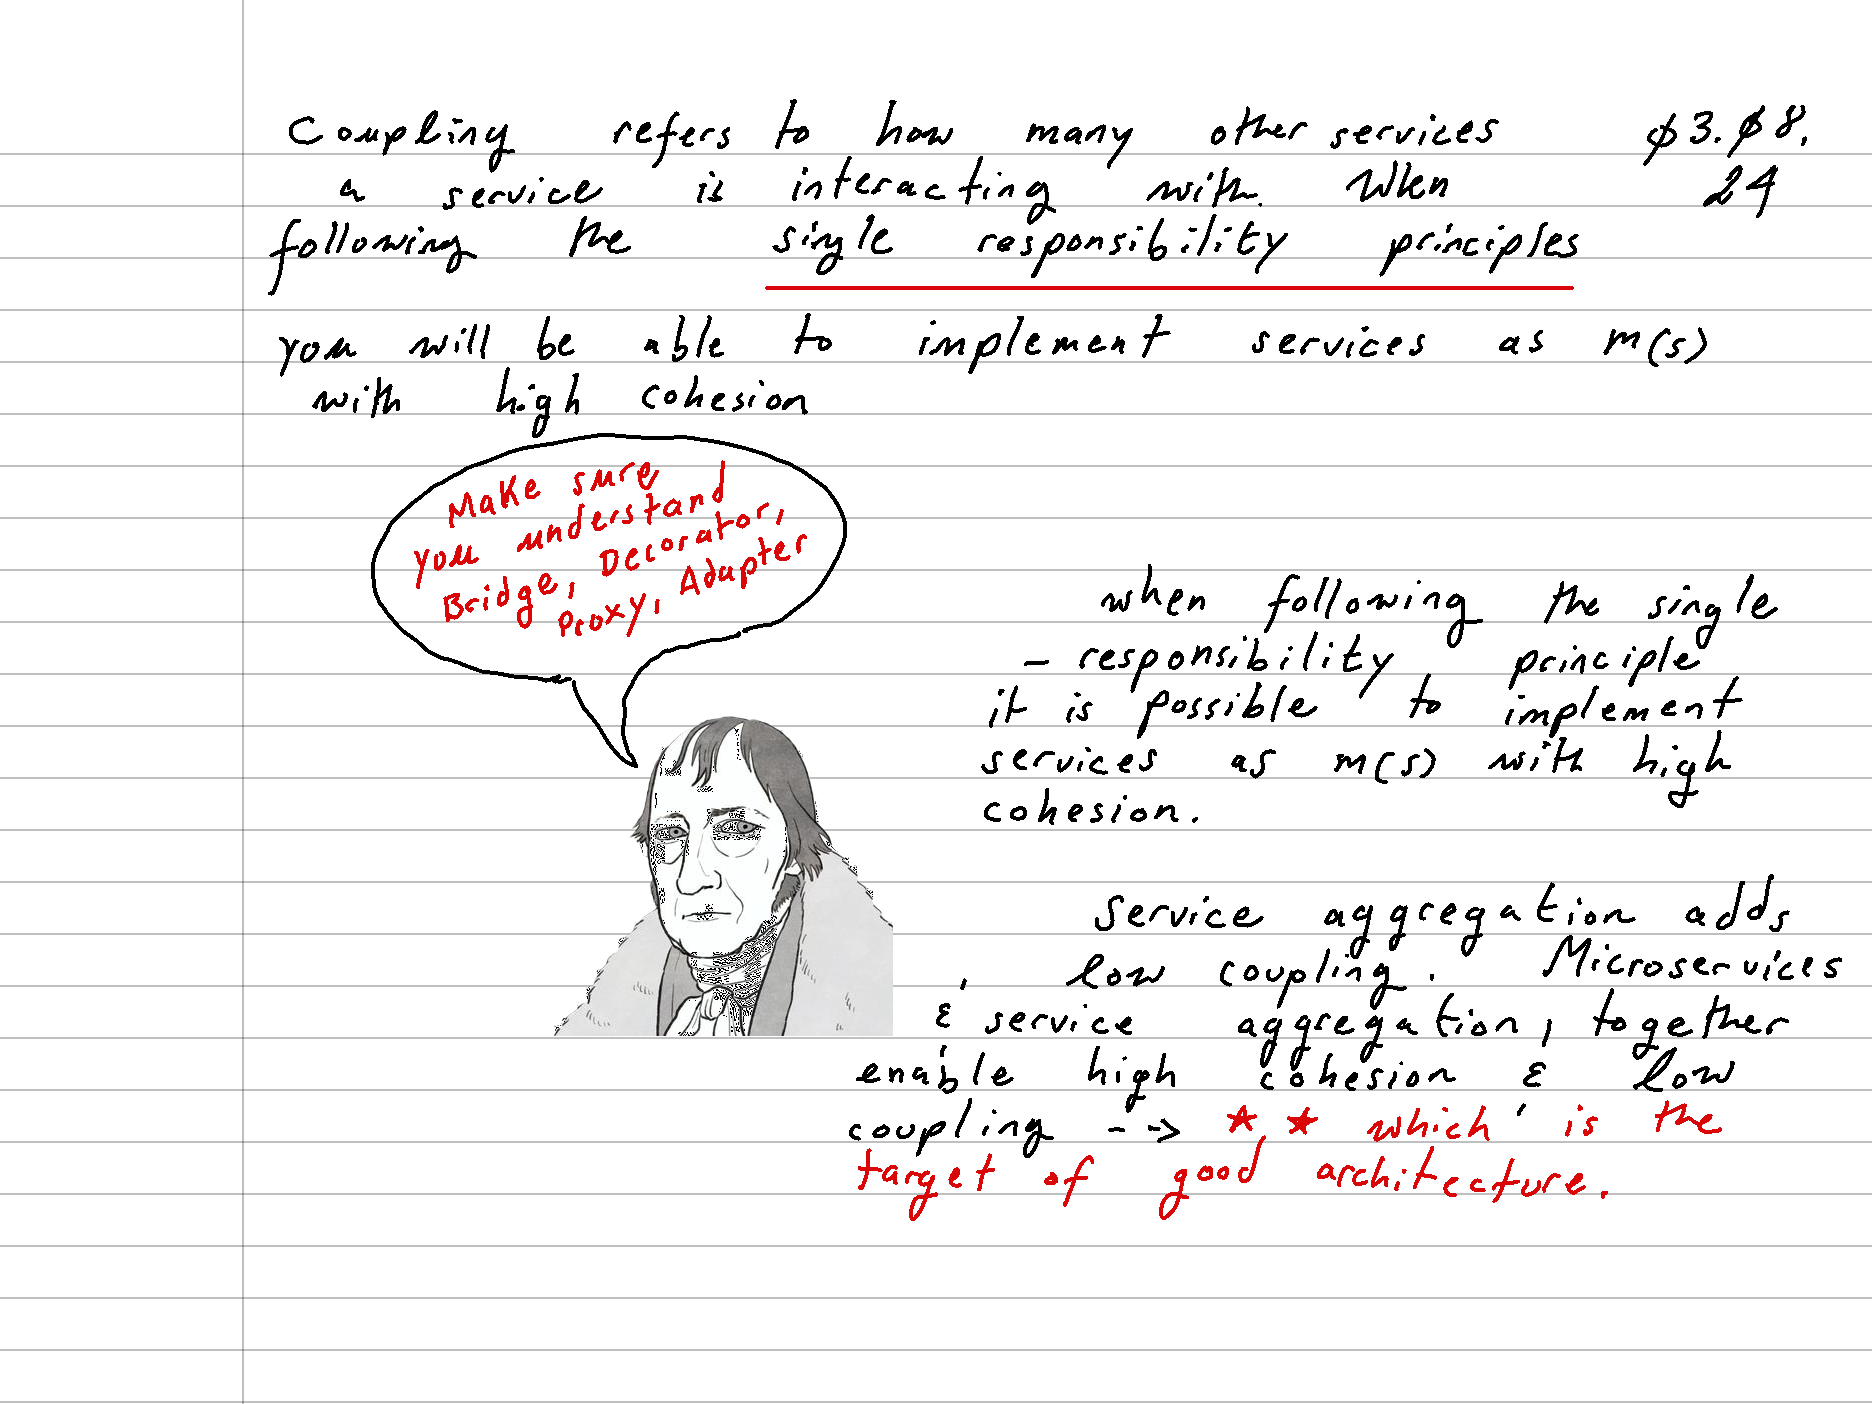 Coupling refers to how many other services
03.08.
a service is interacting with. When
24
following the single responsibility principles
you will be able to implement services as m(s)
with high cohesion
Make sure
you understand
Bridge, Decorator,
Proxy, Adapter
when following the single
- responsibility principle
it is possible to implement
services as m(s) with high
cohesion.
Service aggregation adds
low coupling. Microservices
& service aggregation, together
enable high cohesion & low
coupling --> ★ ★ which is the
target of good architecture.